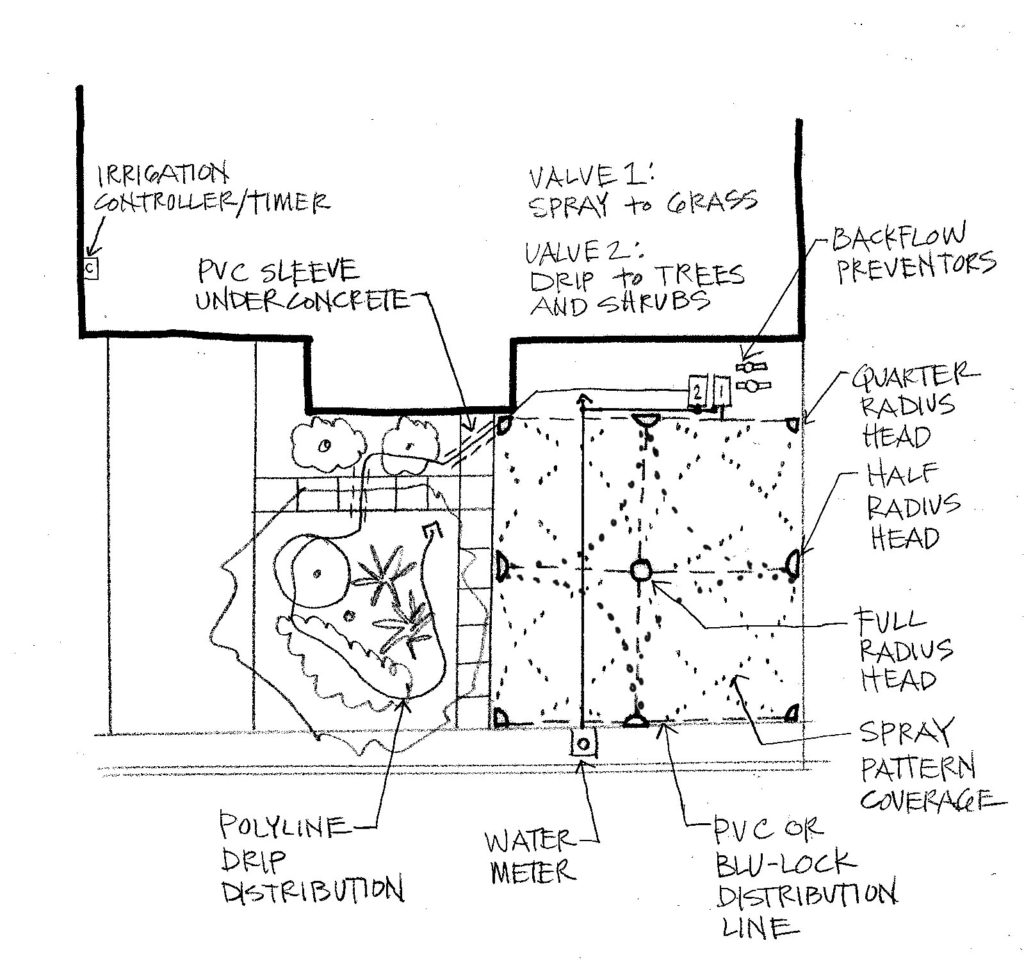 IRRIGATION
CONTROLLER/TIMER
C
VALVE 1:
SPRAY to GRASS
VALVE 2:
DRIP to TREES
AND SHRUBS
BACKFLOW
PREVENTORS
PVC SLEEVE
UNDER CONCRETE
2 1
QUARTER
RADIUS
HEAD
HALF
RADIUS
HEAD
FULL
RADIUS
HEAD
SPRAY
PATTERN
COVERAGE
POLYLINE
DRIP
DISTRIBUTION
WATER
METER
PVC OR
BLU-LOCK
DISTRIBUTION
LINE